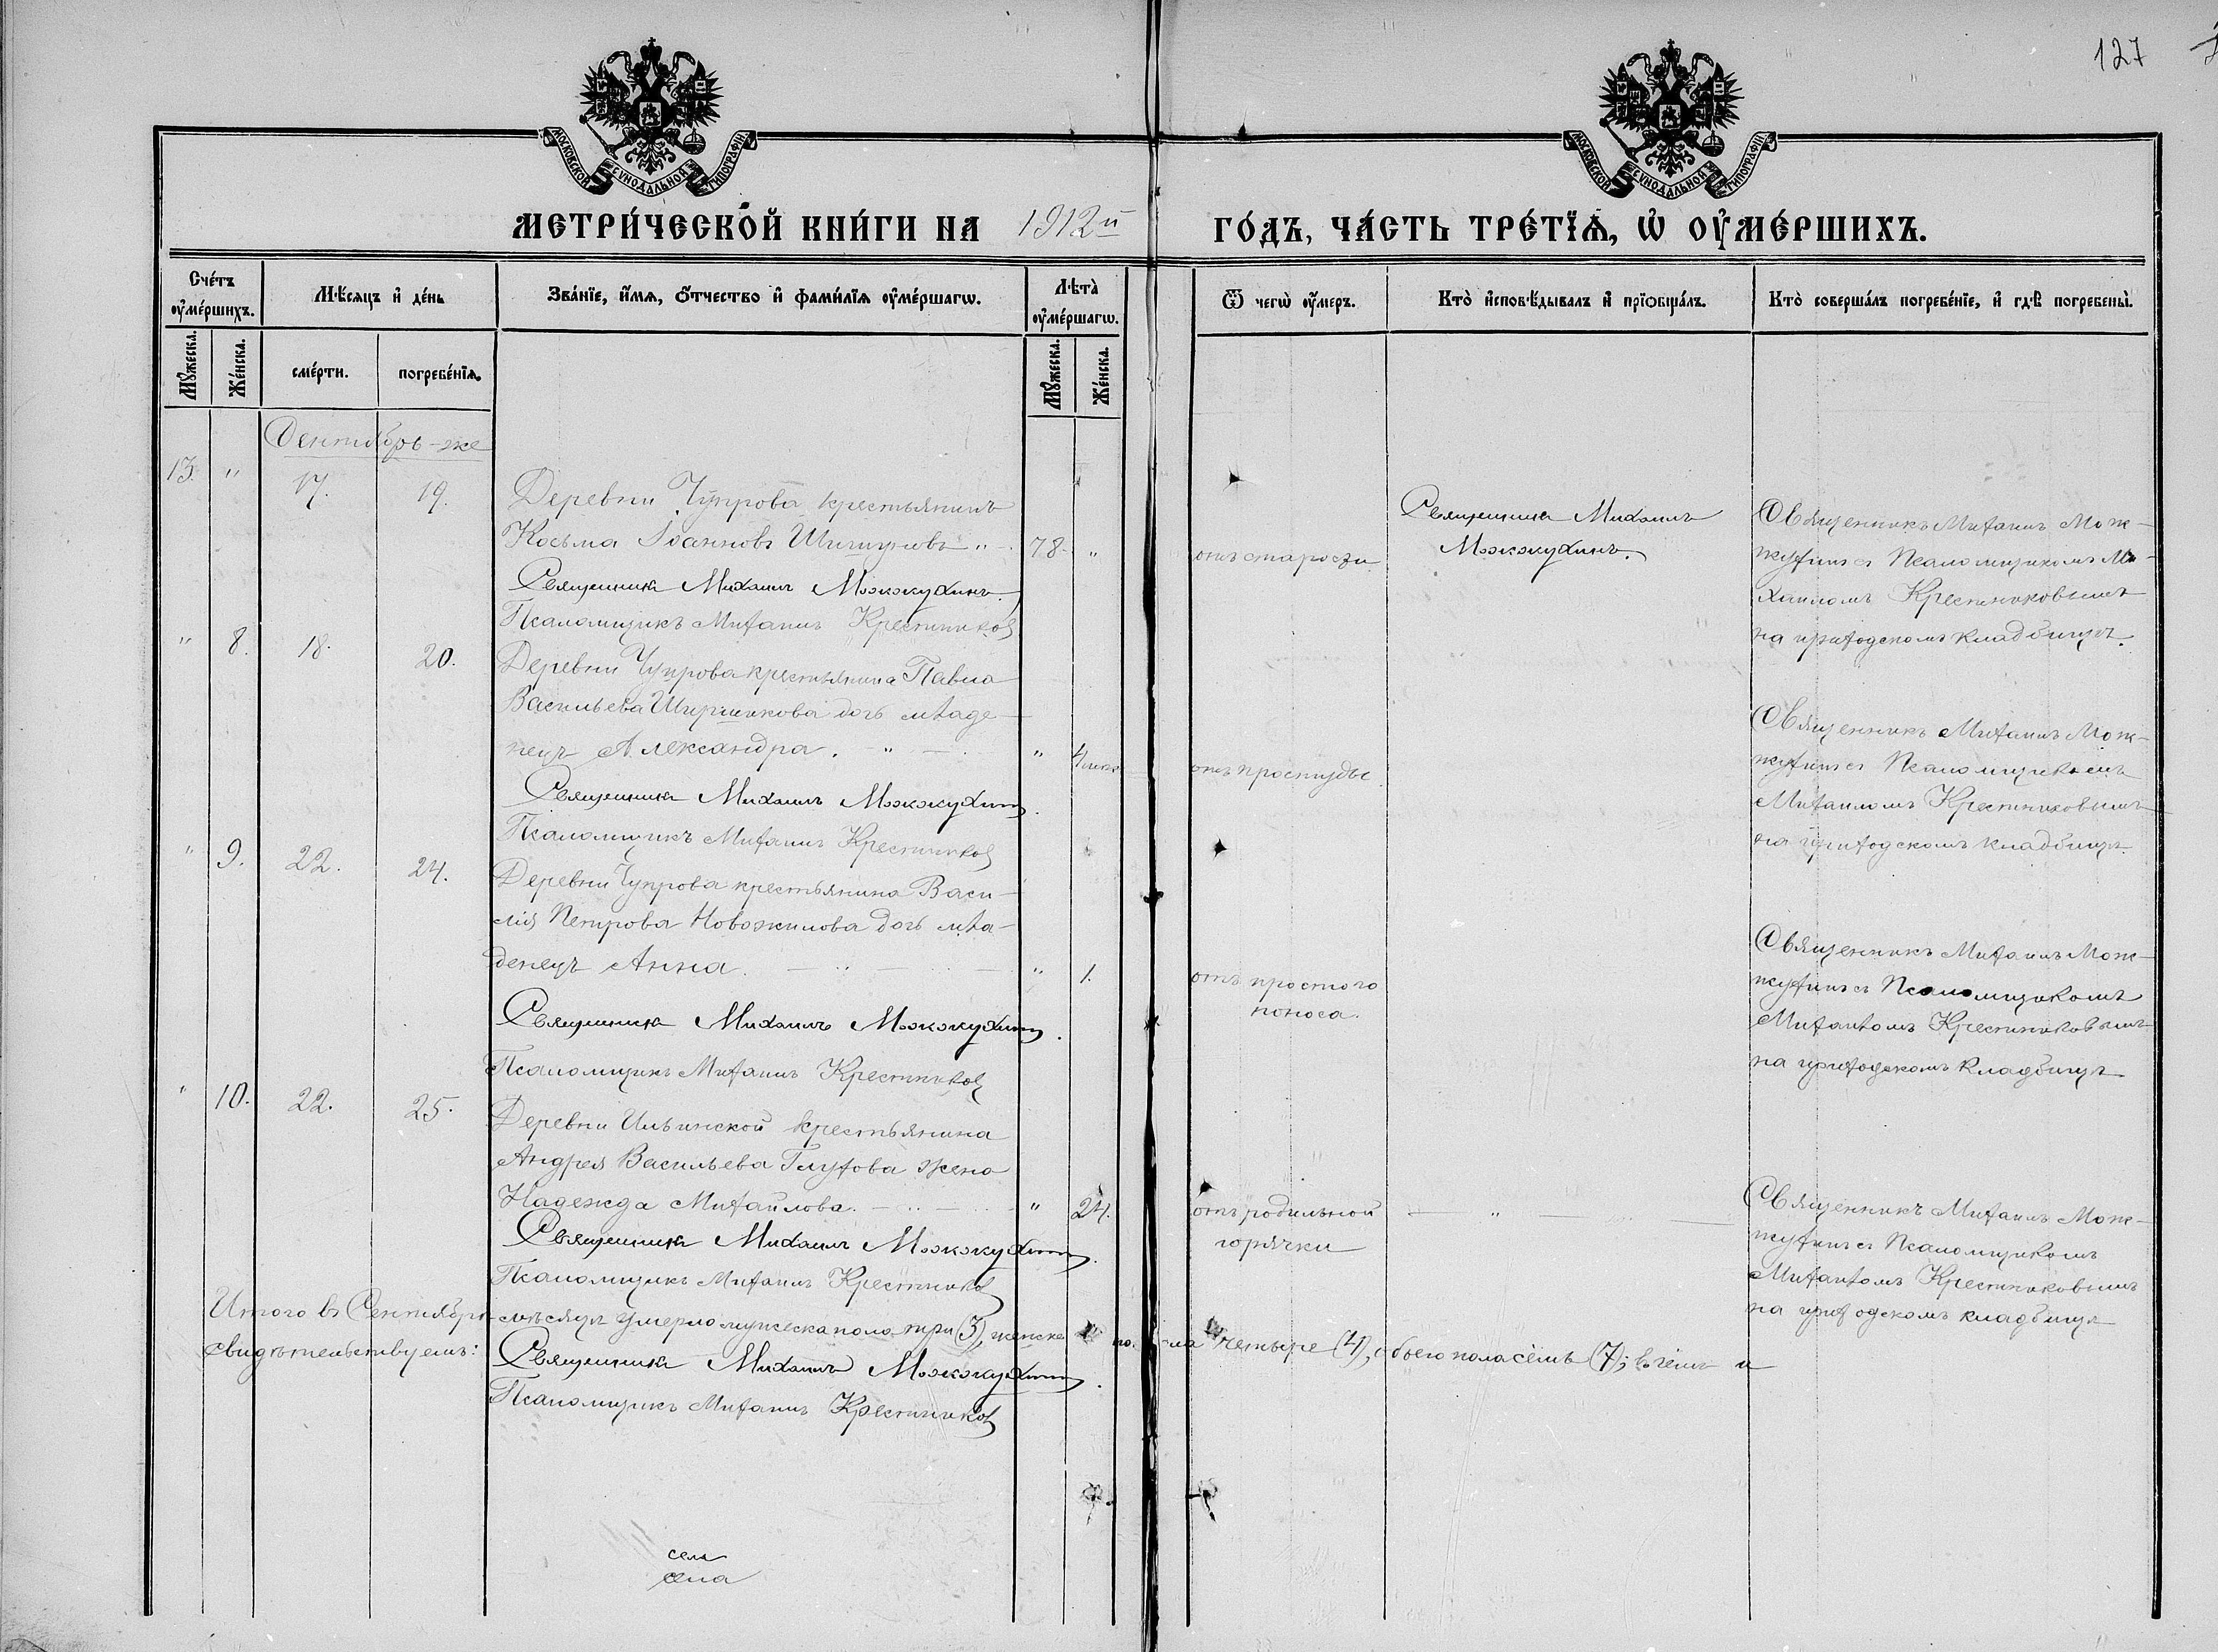 127
МОСКОВСКОЙ СѴНОДАЛЬНОЙ ТИПОГРАФІИ
МОСКОВСКОЙ СѴНОДАЛЬНОЙ ТИПОГРАФІИ
МЕТРИ́ЧЕСКОЙ КНИ́ГИ НА 1912й ГО́ДЪ, ЧА́СТЬ ТРЕ́ТЇѦ, Ѡ҆ ОУ҆МЕ́РШИХЪ.
Сче́тъ оу҆ме́ршихъ.
Мꙋ́жеска.
Же́нска.
Мѣ́сѧцъ и҆ де́нь
сме́рти.
погребе́нїѧ.
Зва́нїе, и҆́мѧ, ѻ҆́тчество и҆ фами́лїѧ оу҆ме́ршагѡ.
Лѣ̀та̀ оу҆ме́ршагѡ.
Мꙋ́жеска.
Же́нска.
Ѿ чегѡ̀ оу҆́меръ.
Кто̀ и҆сповѣ́дывалъ и҆ прїѻбща́лъ.
Кто̀ соверша́лъ погребе́нїе, и҆ гдѣ̀ погребены̀.
Сентябрь-же
13. " 17. 19.
Деревни Чупрова крестьянинъ
Косьма Іоанновъ " 78. "
Священникъ Михаилъ Можжухинъ.
Псаломщикъ Михаилъ Крестниковъ
отъ старости
Священникъ Михаилъ
Можжухинъ.
Священникъ Михаилъ Мож-
жухинъ съ Псаломщикомъ Ми-
хаиломъ Крестниковымъ
на приходскомъ кладбищѣ.
" 8. 18. 20.
Деревни Чупрова крестьянина Павла
Васильева Ширшикова дочь младе-
нецъ Александра. " " 4
Священникъ Михаилъ Можжухинъ.
Псаломщикъ Михаилъ Крестниковъ
отъ простуды
Священникъ Михаилъ Мож-
жухинъ съ Псаломщикомъ
Михаиломъ Крестниковымъ
на приходскомъ кладбищѣ.
" 9. 22. 24.
Деревни Чупрова крестьянина Васи-
лія Петрова Новожилова дочь мла-
денецъ Анна. " " 1.
Священникъ Михаилъ Можжухинъ.
Псаломщикъ Михаилъ Крестниковъ
отъ простого
поноса.
Священникъ Михаилъ Мож-
жухинъ съ Псаломщикомъ
Михаиломъ Крестниковымъ
на приходскомъ кладбищѣ
" 10. 22. 25.
Деревни Ильинской крестьянина
Андрея Васильева Глухова жена
Надежда Михайлова. " " 24.
Священникъ Михаилъ Можжухинъ.
Псаломщикъ Михаилъ Крестниковъ
отъ родильной
горячки
"
Священникъ Михаилъ Мож-
жухинъ съ Псаломщикомъ
Михаиломъ Крестниковымъ
на приходскомъ кладбищѣ
Итого въ Сентябрѣ мѣсяцѣ умерло мужеска пола три (3), женска пола четыре (4), обоего пола семь (7); въ чемъ и
свидѣтельствуемъ: Священникъ Михаилъ Можжухинъ.
Псаломщикъ Михаилъ Крестниковъ
села
села